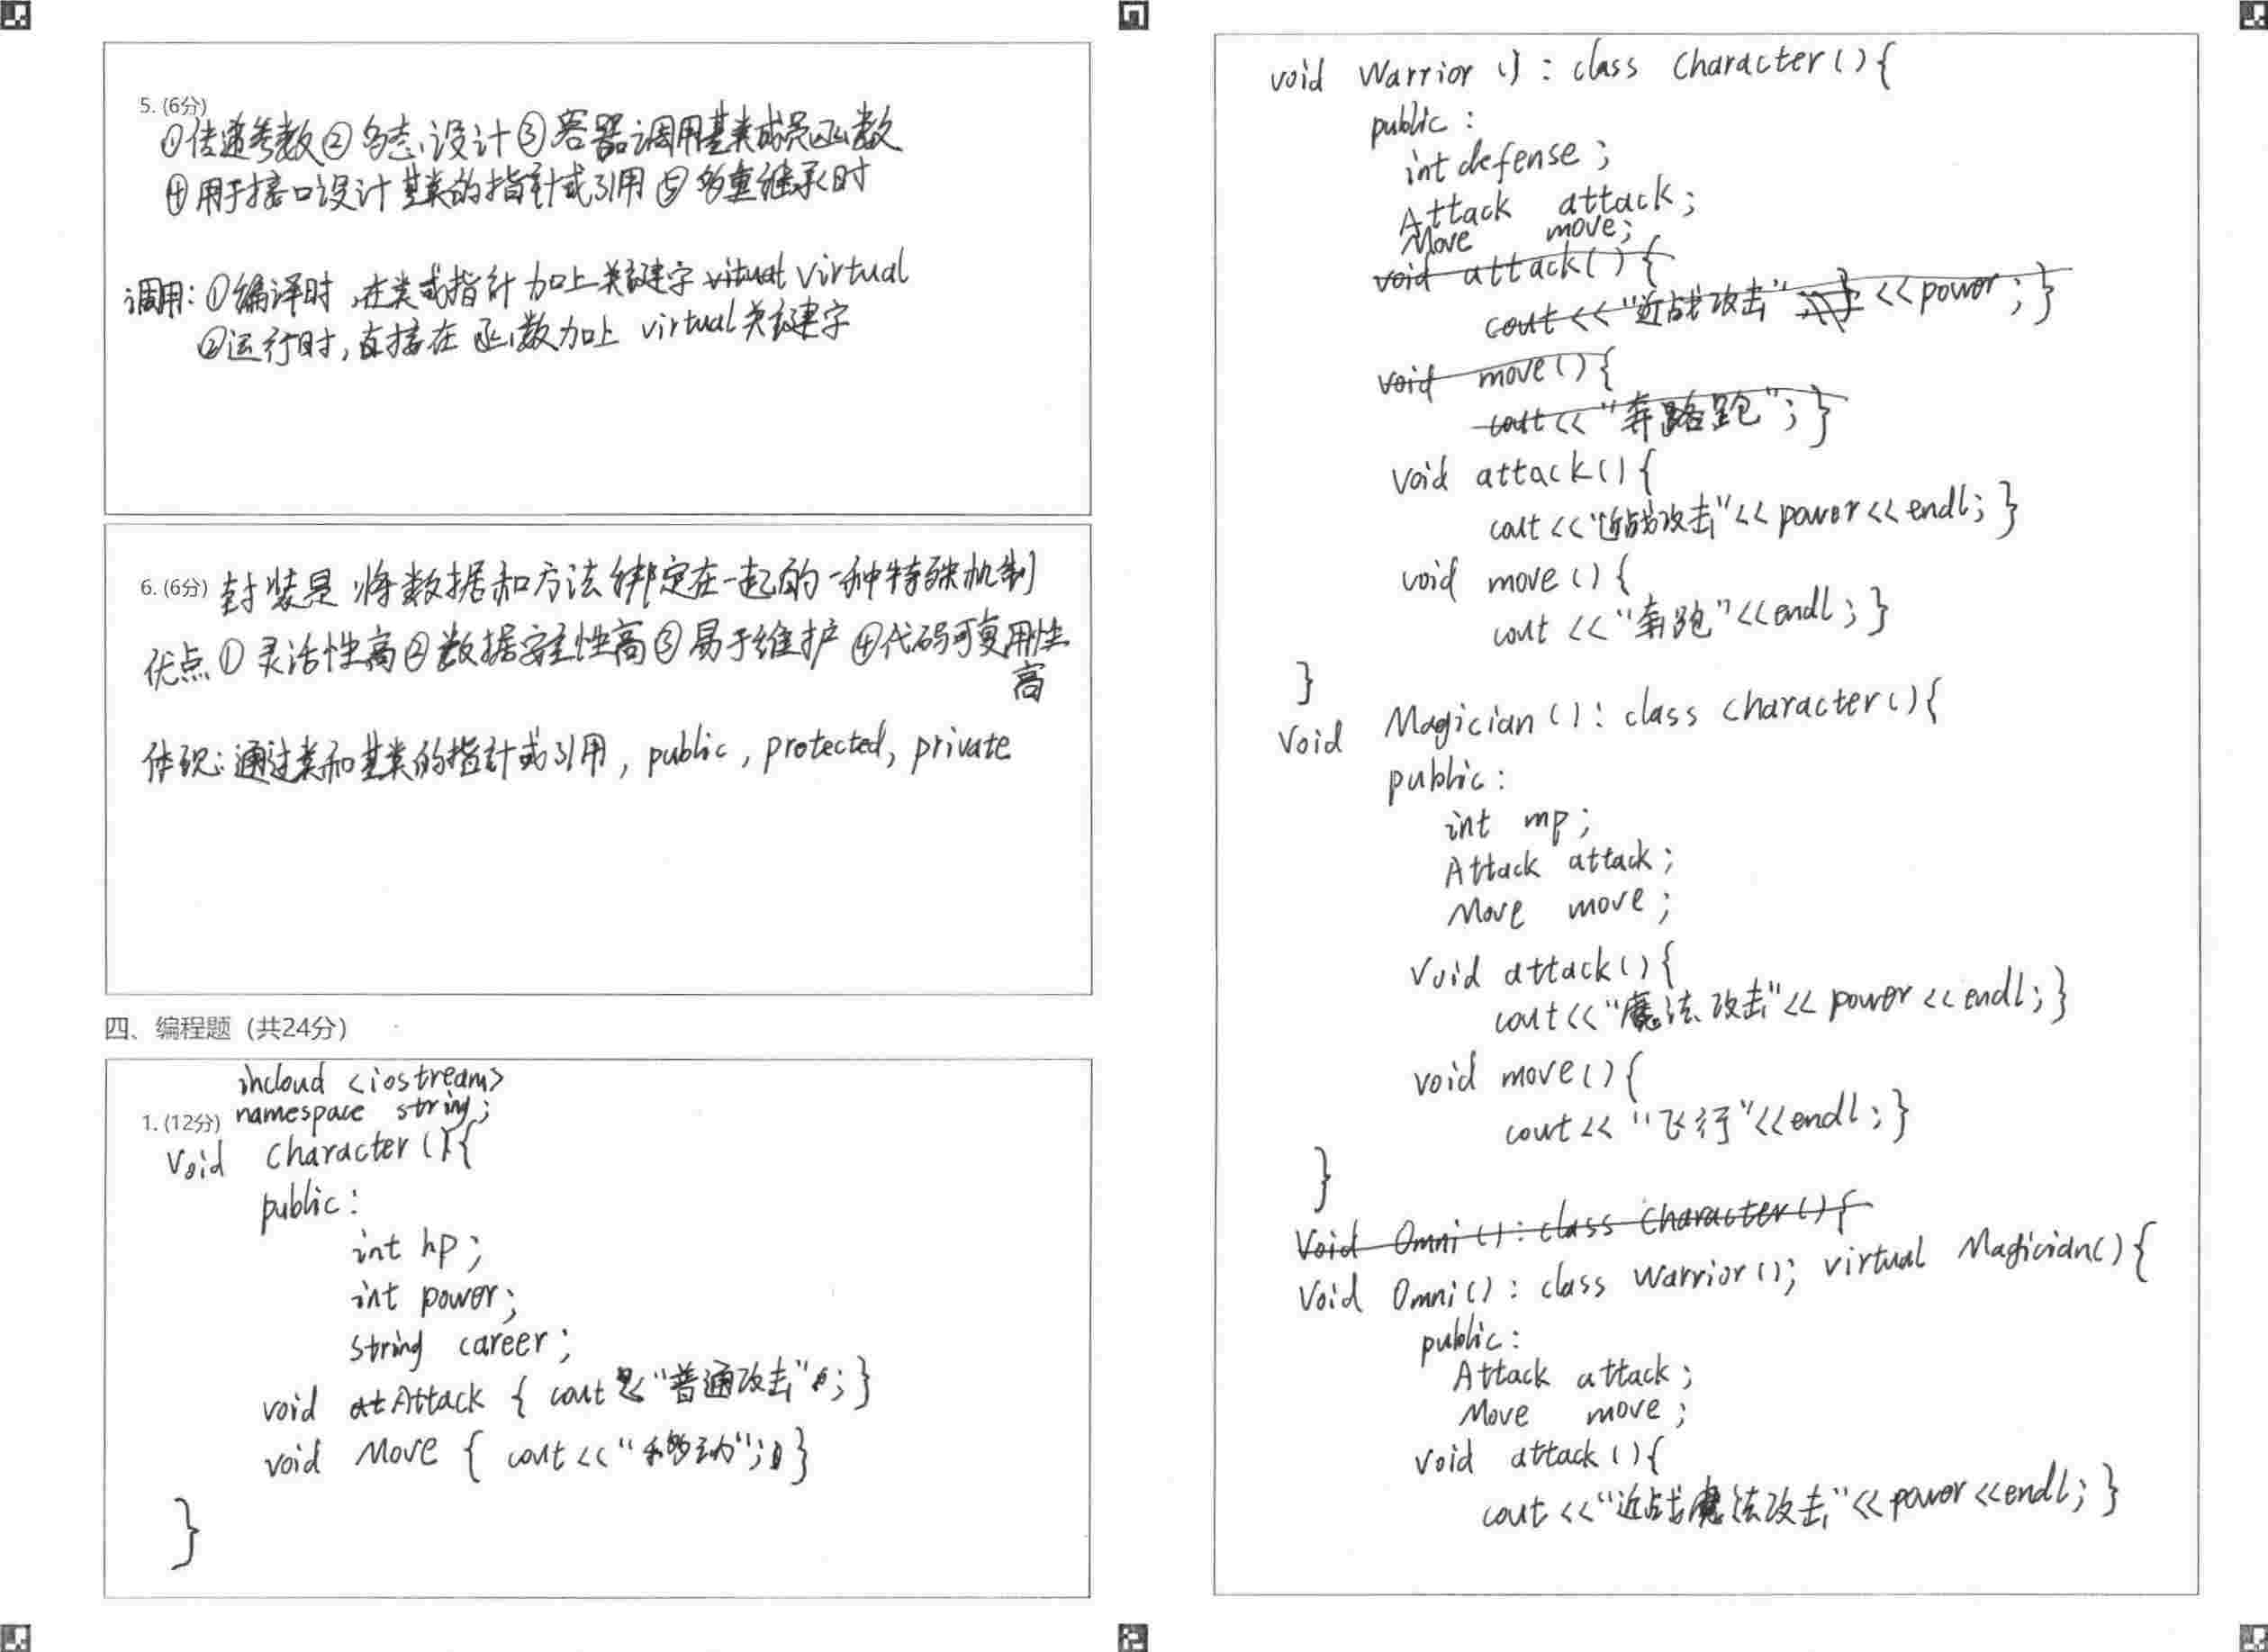 5. (6分)
①传递参数②多态设计③容器调用基类成员函数
④用于接口设计基类的指针或引用⑤多重继承时
调用:①编译时,在类或指针加上关键字 vitual virtual
②运行时,直接在函数加上 virtual关键字
6. (6分) 封装是将数据和方法绑定在一起的一种特殊机制
优点①灵活性高②数据安全性高③易于维护④代码可复用性
高
体现:通过类和基类的指针或引用, public, protected, private
四、编程题(共24分)
incloud <iostream>
1. (12分) namespace string;
Void Character(){
public:
int hp;
int power;
string career;
void at Attack { cout << "普通攻击"; }
void Move { cout << "移动"; }
}
void Warrior (): class Character(){
public:
int defense;
Attack attack;
Move move;
void attack(){
cout << "近战攻击" << power; }
void move(){
cout << "奔跑"; }
void attack(){
cout << "近战攻击" << power << endl; }
void move(){
cout << "奔跑" << endl; }
}
Void Magician(): class Character(){
public:
int mp;
Attack attack;
Move move;
Void attack(){
cout << "魔法攻击" << power << endl; }
void move(){
cout << "飞行" << endl; }
}
Void Omni(): class Character(){
Void Omni(): class Warrior(); virtual Magician(){
public:
Attack attack;
Move move;
void attack(){
cout << "近战魔法攻击" << power << endl; }